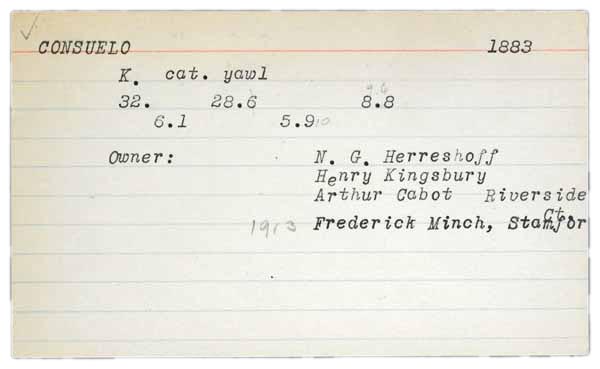 CONSUELO 1883
K. cat. yawl
32. 28.6 8.8
6.1 5.9 10
Owner: N. G. Herreshoff
Henry Kingsbury
Arthur Cabot Riverside
Ct.
1913 Frederick Minch, Stamfor